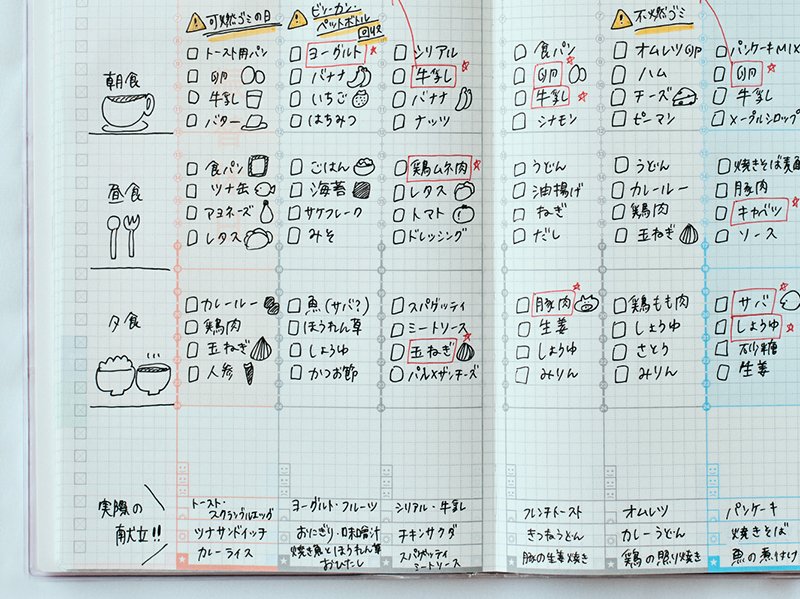 可燃ゴミの日
ビン・カン・
ペットボトル
回収
不燃ゴミ
朝食
トースト用パン
卵
牛乳
バター
ヨーグルト
バナナ
いちご
はちみつ
シリアル
牛乳
バナナ
ナッツ
食パン
卵
牛乳
シナモン
オムレツ卵
ハム
チーズ
ピーマン
パンケーキMIX
卵
牛乳
メープルシロップ
昼食
食パン
ツナ缶
マヨネーズ
レタス
ごはん
海苔
サケフレーク
みそ
鶏ムネ肉
レタス
トマト
ドレッシング
うどん
油揚げ
ねぎ
だし
うどん
カレールー
鶏肉
玉ねぎ
焼きそば麺
豚肉
キャベツ
ソース
夕食
カレールー
鶏肉
玉ねぎ
人参
魚(サバ?)
ほうれん草
しょうゆ
かつお節
スパゲッティ
ミートソース
玉ねぎ
パルメザンチーズ
豚肉
生姜
しょうゆ
みりん
鶏もも肉
しょうゆ
さとう
みりん
サバ
しょうゆ
砂糖
生姜
実際の
献立!!
トースト・
スクランブルエッグ
ツナサンドイッチ
カレーライス
ヨーグルト・フルーツ
おにぎり・味噌汁
焼き魚とほうれん草
おひたし
シリアル・牛乳
チキンサラダ
スパゲッティ
ミートソース
フレンチトースト
きつねうどん
豚の生姜焼き
オムレツ
カレーうどん
鶏の照り焼き
パンケーキ
焼きそば
魚の煮付け